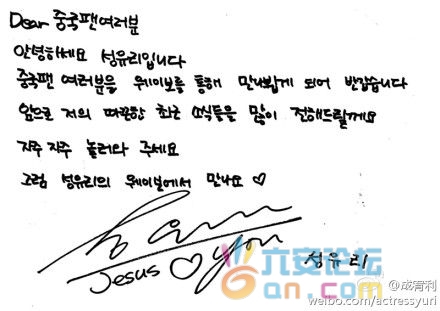 Dear 중국팬여러분
안녕하세요 성유리입니다
중국팬 여러분을 웨이보를 통해 만나뵙게 되어 반갑습니다
앞으로 저의 따끈한 최근 소식들을 많이 전해드릴께요
자주 자주 놀러와 주세요
그럼 성유리의 웨이보에서 만나요 ♡
Jesus ♡ you
성유리
六安论坛
6an.com
@成宥利
weibo.com/actressyuri